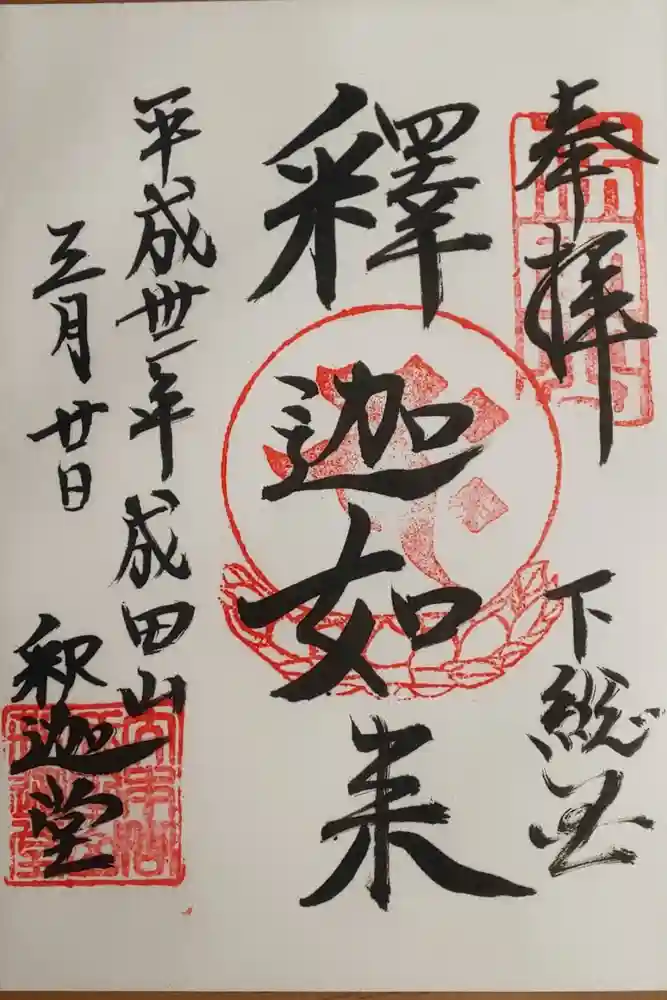 奉拝
下総国
釋迦如来
平成丗一年成田山
三月廿日
釈迦堂